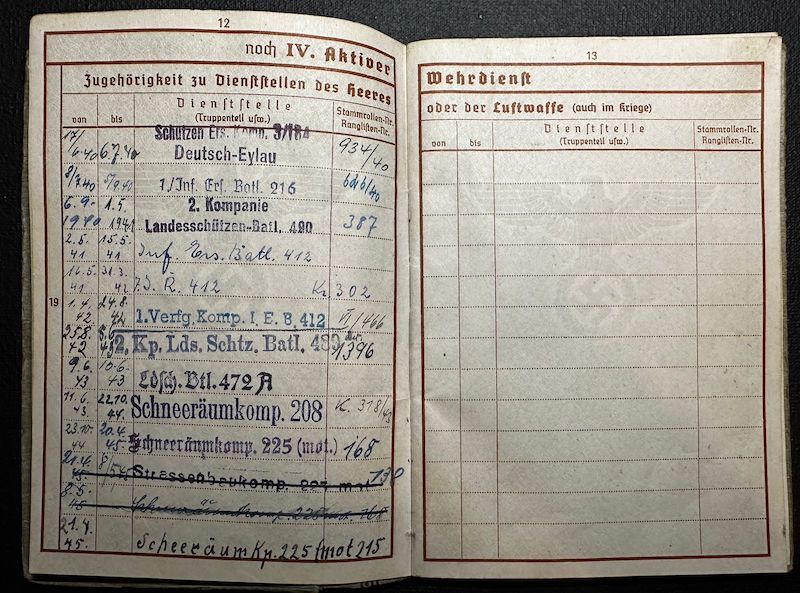 12
noch IV. Aktiver
Zugehörigkeit zu Dienststellen des Heeres
von bis Dienststelle (Truppenteil usw.) Stammrollen-Nr. Ranglisten-Nr.
17/6.40 6.7.40 Schützen Ers. Komp. 3/184 Deutsch-Eylau 934/40
8/7.40 5/9.40 1./Inf. Ers. Batl. 216
6.9. 1940 1.5. 1941 2. Kompanie Landesschützen-Batl. 490 387
2.5. 41 15.5. 41 Inf. Ers. Batl. 412
16.5. 41 31.3. 42 J. R. 412 302
19
1.4. 42 24.8. 42 1. Verfg. Komp. I. E. B. 412 /466
25.8. 42 8.6. 43 2. Kp. Lds. Schtz. Batl. 1396
9.6. 43 10.6. 43 Ldsch. Btl. 472 A
11.6. 43. 22.10. 44. Schneeräumkomp. 208 K. 318/43
23.10. 44 20.4. 45 Schneeräumkomp. 225 (mot.) 168
21.4. 45 8/5.45 Strassenbaukomp. 227 mot 130
8.5. 45 Schneeräumkomp. 225 mot. 168
21.4. 45. Scheeräum Kp. 225 (mot 215
13
Wehrdienst
oder der Luftwaffe (auch im Kriege)
von bis Dienststelle (Truppenteil usw.) Stammrollen-Nr. Ranglisten-Nr.